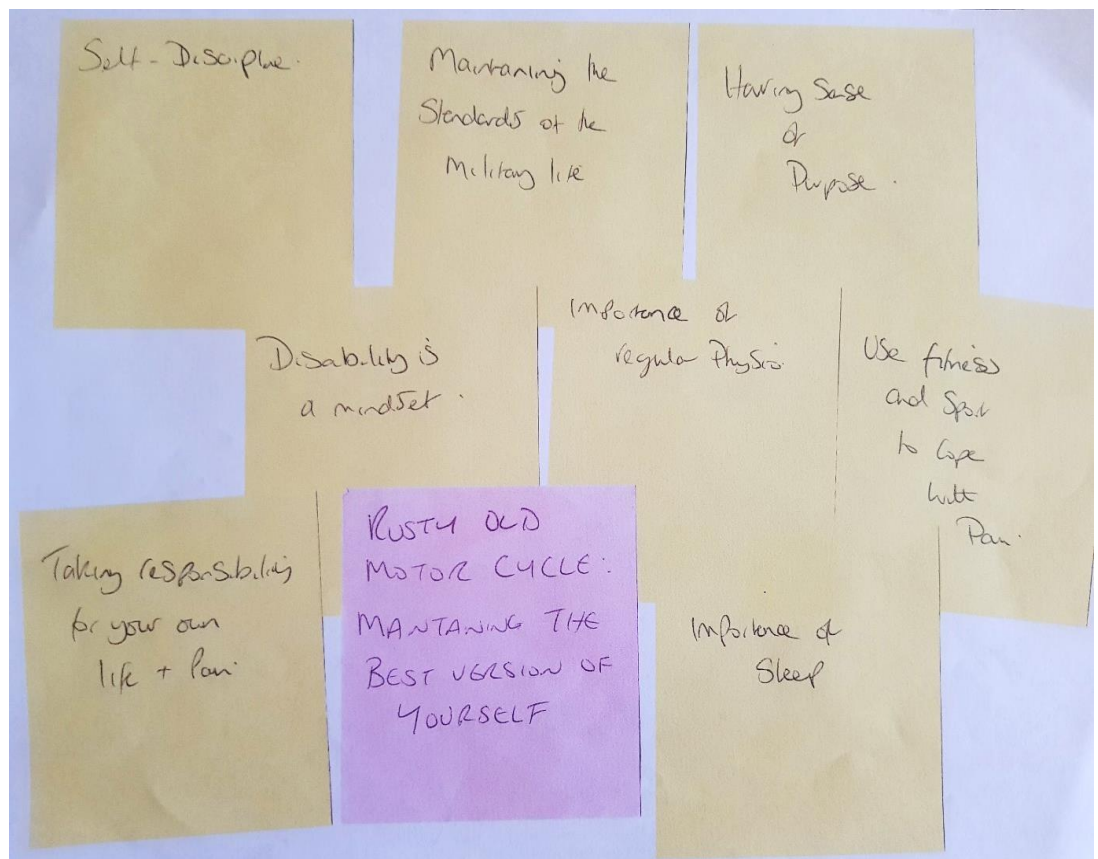 Self-Discipline.
Maintaning the
Standards of the
Military life
Having Sense
of
Purpose.
Disability is
a mindset.
Importance of
regular Physio.
Use fitness
and Sport
to Cope
with
Pain.
Taking responsibility
for your own
life + Pain.
RUSTY OLD
MOTOR CYCLE:
MANTANING THE
BEST VERSION OF
YOURSELF
Importance of
Sleep